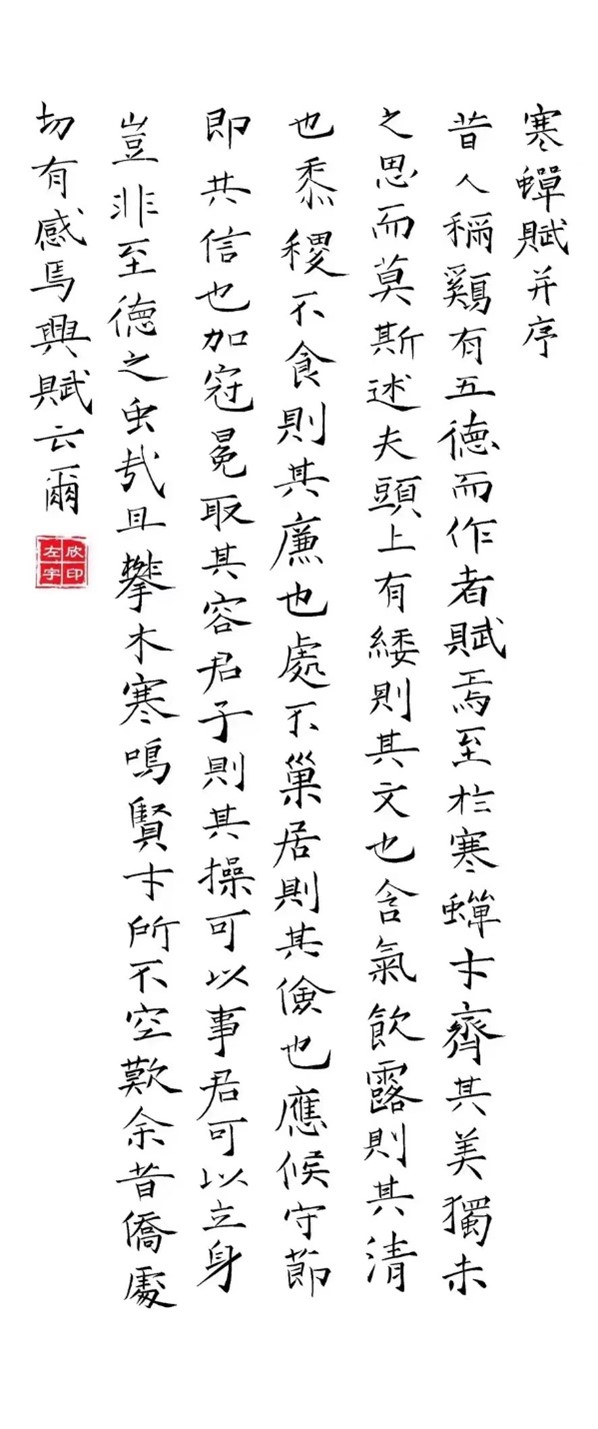 寒蟬賦并序
昔人稱鷄有五德而作者賦焉至於寒蟬才齊其美獨未
之思而莫斯述夫頭上有緌則其文也含氣飲露則其清
也黍稷不食則其廉也處不巢居則其儉也應候守節
即其信也加冠冕取其容君子則其操可以事君可以立身
豈非至德之虫哉且攀木寒鳴賢才所不空歎余昔僑處
切有感焉興賦云爾
欣印
左字